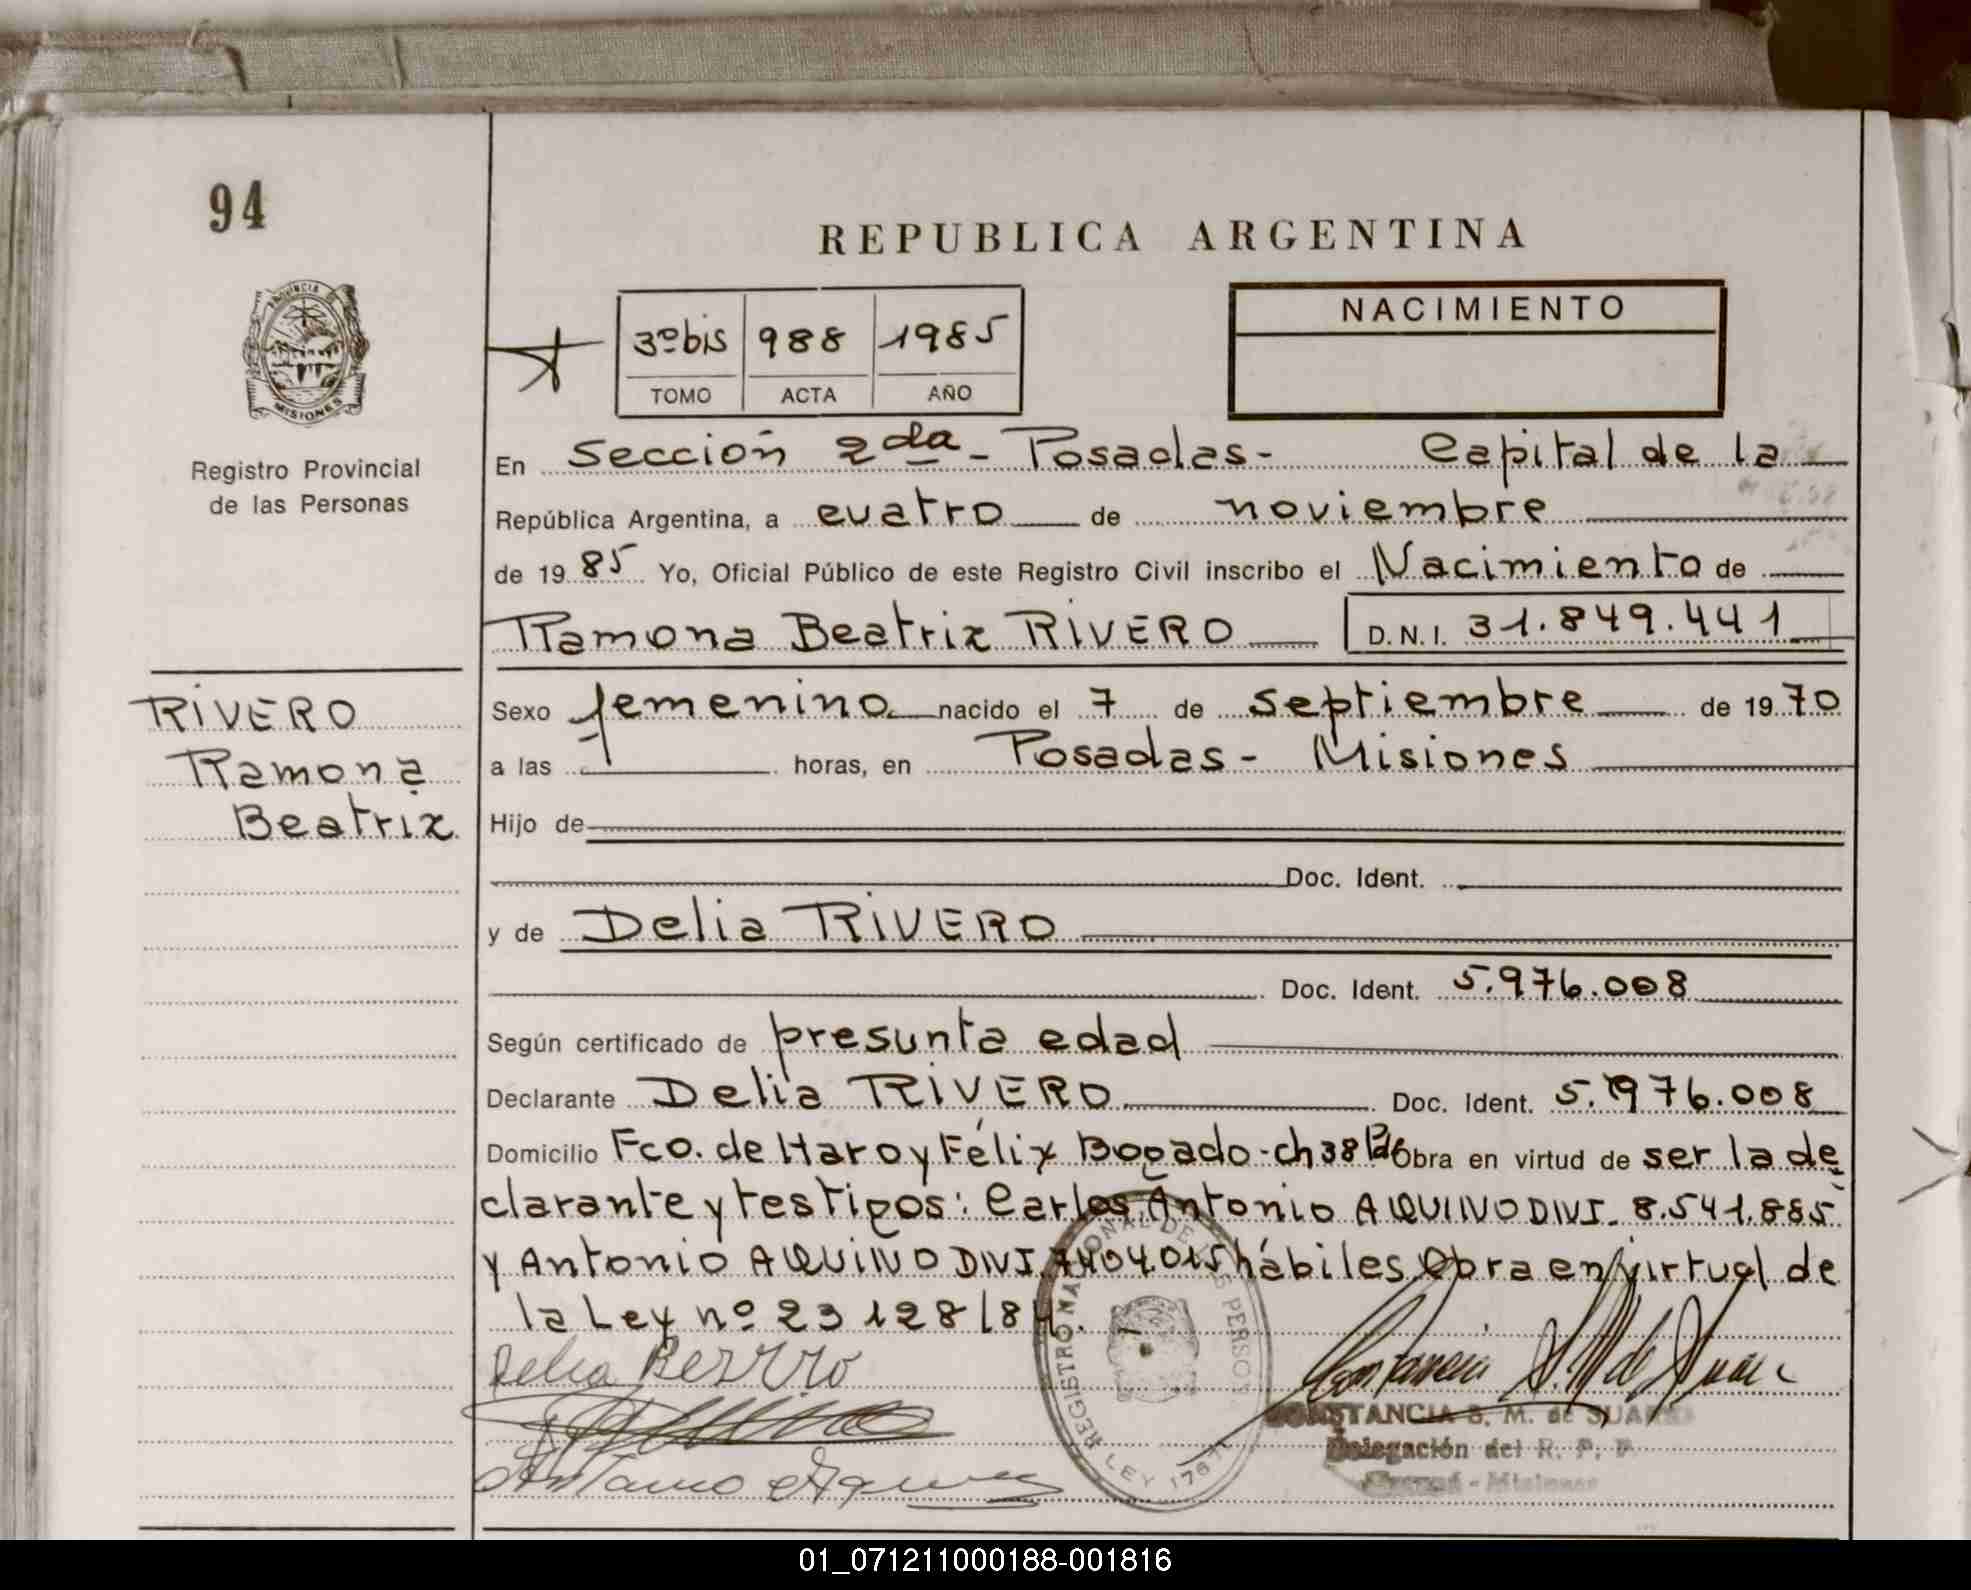 94
REPUBLICA ARGENTINA
PROVINCIA DE
MISIONES
Registro Provincial
de las Personas
3º bis 988 1985
TOMO ACTA AÑO
NACIMIENTO
En Sección 2da - Posadas - Capital de la
República Argentina, a cuatro de noviembre
de 1985 Yo, Oficial Público de este Registro Civil inscribo el Nacimiento de
Ramona Beatriz RIVERO D.N.I. 31.849.441
RIVERO
Ramona
Beatriz
Sexo femenino nacido el 7 de septiembre de 1970
a las horas, en Posadas - Misiones
Hijo de
Doc. Ident.
y de Delia RIVERO
Doc. Ident. 5.976.008
Según certificado de presunta edad
Declarante Delia RIVERO Doc. Ident. 5.976.008
Domicilio Fco. de Haro y Félix Bogado - ch 38 Obra en virtud de ser la de
clarante y testigos: Carlos Antonio AQUINO DNI. 8.541.885
y Antonio AQUINO DNI. hábiles. Obra en virtud de
la Ley nº 23128/84.
REGISTRO NACIONAL DE LAS PERSONAS
LEY 1767
CONSTANCIA S. M. de SUAREZ
Delegación del R. P. P.
- Misiones
01_071211000188-001816